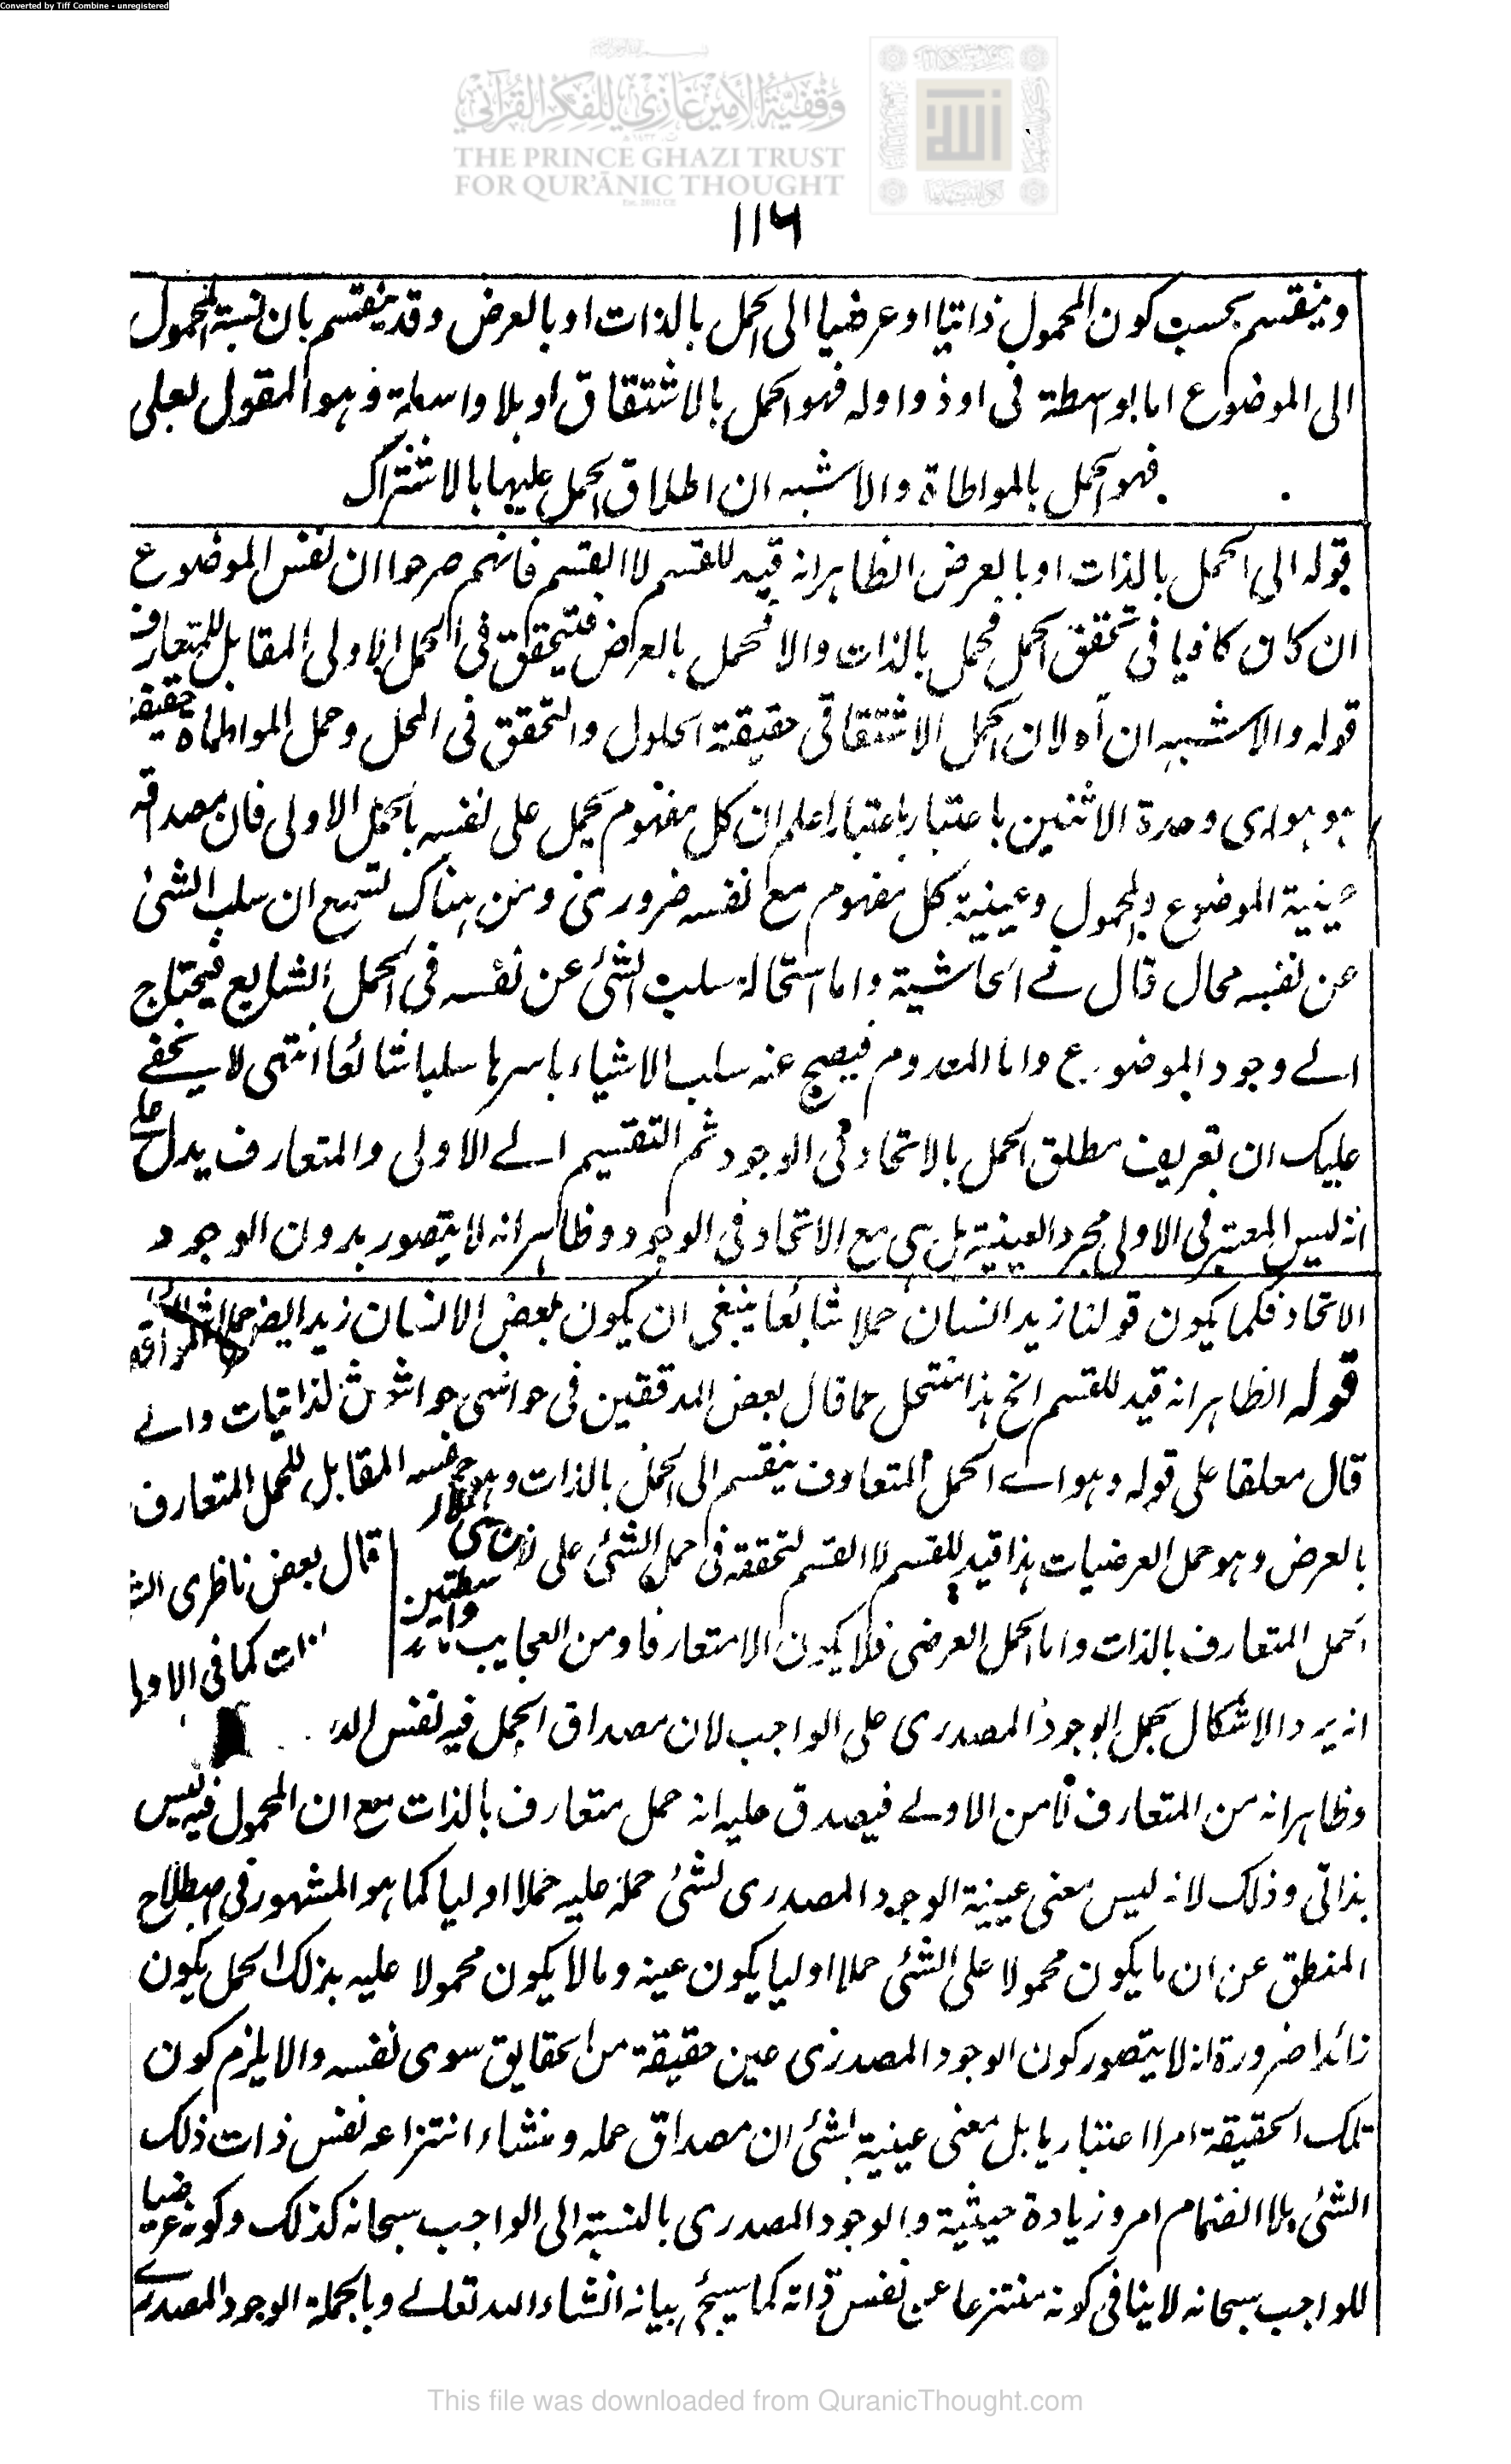 Converted by Tiff Combine - unregistered
وقفية الأمير غازي للفكر القرآني
THE PRINCE GHAZI TRUST
FOR QUR'ĀNIC THOUGHT
Est. 2012 CE
١١٦
وينقسم بحسب كون المحمول ذاتيا او عرضيا الى الحمل بالذات او بالعرض وقد ينقسم بان نسبة المحمول
الى الموضوع اما بواسطة فى او ذو اوله فهو الحمل بالاشتقاق او بلا واسطة وهو المقول بعلى
فهو الحمل بالمواطاة والاشبه ان اطلاق الحمل عليها بالاشتراك
قوله الى الحمل بالذات او بالعرض الظاهر انه قيد للقسم لا المقسم فانهم صرحوا ان نفس الموضوع
ان كان كافيا فى تحقق الحمل فحمل بالذات والا فحمل بالعرض فيتحقق فى الحمل الاولى المقابل للمتعارف
قوله والاشبه ان آه لان الحمل الاشتقاقى حقيقة الحلول والتحقق فى المحل وحمل المواطاة حقيقة
هو هو اى وحدة الاثنين باعتبار باعتبار اعلم ان كل مفهوم يحمل على نفسه بالحمل الاولى فان مصداقه
عينية الموضوع والمحمول وعينية كل مفهوم مع نفسه ضرورى ومن هناك تسمع ان سلب الشئ
عن نفسه محال قال فى الحاشية واما استحالة سلب الشئ عن نفسه فى الحمل الشايع فيحتاج
الے وجود الموضوع واما المعدوم فيصح عنه سلب الاشياء باسرها سلبا شائعا انتهى لا يخفے
عليك ان تعريف مطلق الحمل بالاتحاد فى الوجود ثم التقسيم الے الاولى والمتعارف يدل علے
انه ليس المعتبر فى الاولى مجرد العينية بل هى مع الاتحاد فى الوجود وظاهر انه لا يتصور بدون الوجود
الاتحاد فكما يكون قولنا زيد انسان حملا شائعا ينبغى ان يكون بعض الانسان زيد ايض حملا
قوله الظاهر انه قيد للقسم الخ هذا منتحل مما قال بعض المدققين فى حواشى
قال معلقا على قوله وهو اے الحمل المتعارف ينقسم الى الحمل بالذات وهو حمل المقابل للحمل المتعارف
بالعرض وهو حمل العرضيات هذا قيد للقسم لا المقسم لتحققه فى حمل الشئ على قال بعض ناظرى
الحمل المتعارف بالذات واما الحمل العرضى فلا يكون الا متعارفا ومن العجايب كما فى الاولى
انه يرد الاشكال بحمل الوجود المصدرى على الواجب لان مصداق الحمل فيه نفس
وظاهر انه من المتعارف لا من الاولے فيصدق عليه انه حمل متعارف بالذات مع ان المحمول فيه ليس
بذاتى وذلك لانه ليس معنى عينية الوجود المصدرى لشئ حمله عليه حملا اوليا كما هو المشهور فى اصطلاح
المنطق عن ان ما يكون محمولا على الشئ حملا اوليا يكون عينه وما لا يكون محمولا عليه بذلك الحمل يكون
زائدا ضرورة انه لا يتصور كون الوجود المصدرى عين حقيقة من الحقايق سوى نفسه والا يلزم كون
تلك الحقيقة امرا اعتباريا بل معنى عينية لشئ ان مصداق حمله ومنشاء انتزاعه نفس ذات ذلك
الشئ بلا انضمام امر وزيادة حيثية والوجود المصدرى بالنسبة الى الواجب سبحانه كذلك وكونه عرضيا
للواجب سبحانه لا ينافى كونه منتزعا عن نفس ذاته كما سيجئ بيانه انشاء الله تعالے وبالجملة الوجود المصدرے
This file was downloaded from QuranicThought.com